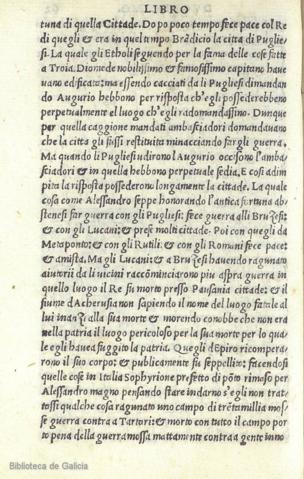 LIBRO
tuna di quella Cittade. Dopo poco tempo fece pace col Re
di quegli & era in quel tempo Brādicio la citta di Puglie
si. La quale gli Etholi seguendo per la fama delle cose fatte
a Troia. Diomede nobilissimo & famosissimo capitano haue
uano edificata: ma essendo cacciati da li Pugliesi dimandan
do Augurio hebbono per risposta ch'egli possederebbeno
perpetualmente el luogo ch'egli radomandassino. Dunque
per quella caggione mandati ambasciadori domandauano
che la citta gli fussi restituita minacciando far gli guerra.
Ma quando li Pugliesi udirono l'Augurio occisono l'amba
sciadori & in quella hebbono perpetuale sedia. E cosi adim
pita la risposta possederono longamente la cittade. La quale
cosa come Alessandro seppe honorando l'antica fortuna ab
stenesi far guerra con gli Pugliesi: fece guerra alli Bruzesi:
& con gli Lucani: & prese molti cittade. Poi con quegli da
Metaponto: & con gli Rutili: & con gli Romani fece pace:
& amista. Ma gli Lucani: & a Bruzesi hauendo ragunato
aiutorii da li uicini raccōminciarono piu aspra guerra in
quello luogo il Re fu morto presso Pausania cittade: & il
fiume d'Acherusia non sapiendo il nome del luogo fatale al
lui inanzi alla sua morte & morendo conobbe che non era
nella patria il luogo pericoloso per la sua morte per lo qua
le egli hauea fuggito la patria. Quegli d'Epiro ricompera
rono il suo corpo: & publicamente fu sepellito: facendosi
quelle cose in Italia Sophyrione prefetto di pōto rimoso per
Alessandro magno pensando stare indarno s'egli non trat
tossi qualche cosa ragunato uno campo di trētamillia mos
se guerra contra a Tartari: & morto con tutto il campo por
to pena della guerra mossa mattamente contra a gente inno
Biblioteca de Galicia